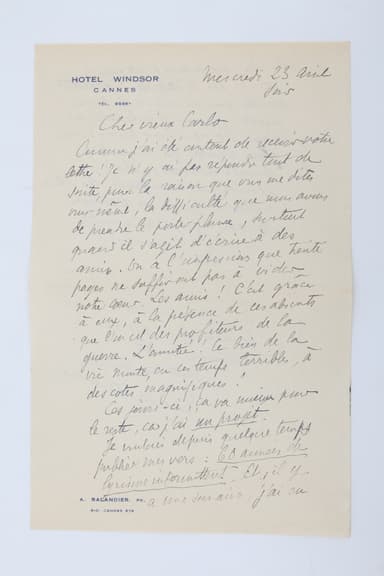 HOTEL WINDSOR
CANNES
TÉL.
Mercredi 23 Avril
Soir
Cher vieux Carlo
Comme j'ai été content de recevoir votre
lettre ! Je n'y ai pas répondu tout de
suite, pour la raison que vous me dites
vous-même, la difficulté que nous avons
de prendre le porte-plume, surtout
quand il s'agit d'écrire à des
amis. On a l'impression que trente
pages ne suffiront pas à vider
notre cœur. Les amis ! C'est grâce
à eux, à la présence de ces absents
que l'on est des profiteurs de la
guerre. L'amitié ! Ce bien de la
vie monte, en ces temps terribles, à
des cotes magnifiques !
Ces jours-ci, ça va mieux pour
le reste, car j'ai un projet.
Je voulais depuis quelque temps
publier mes vers :
Et, il y
a une semaine, j'ai eu
A. BALANDIER, PR.
R.C. CANNES